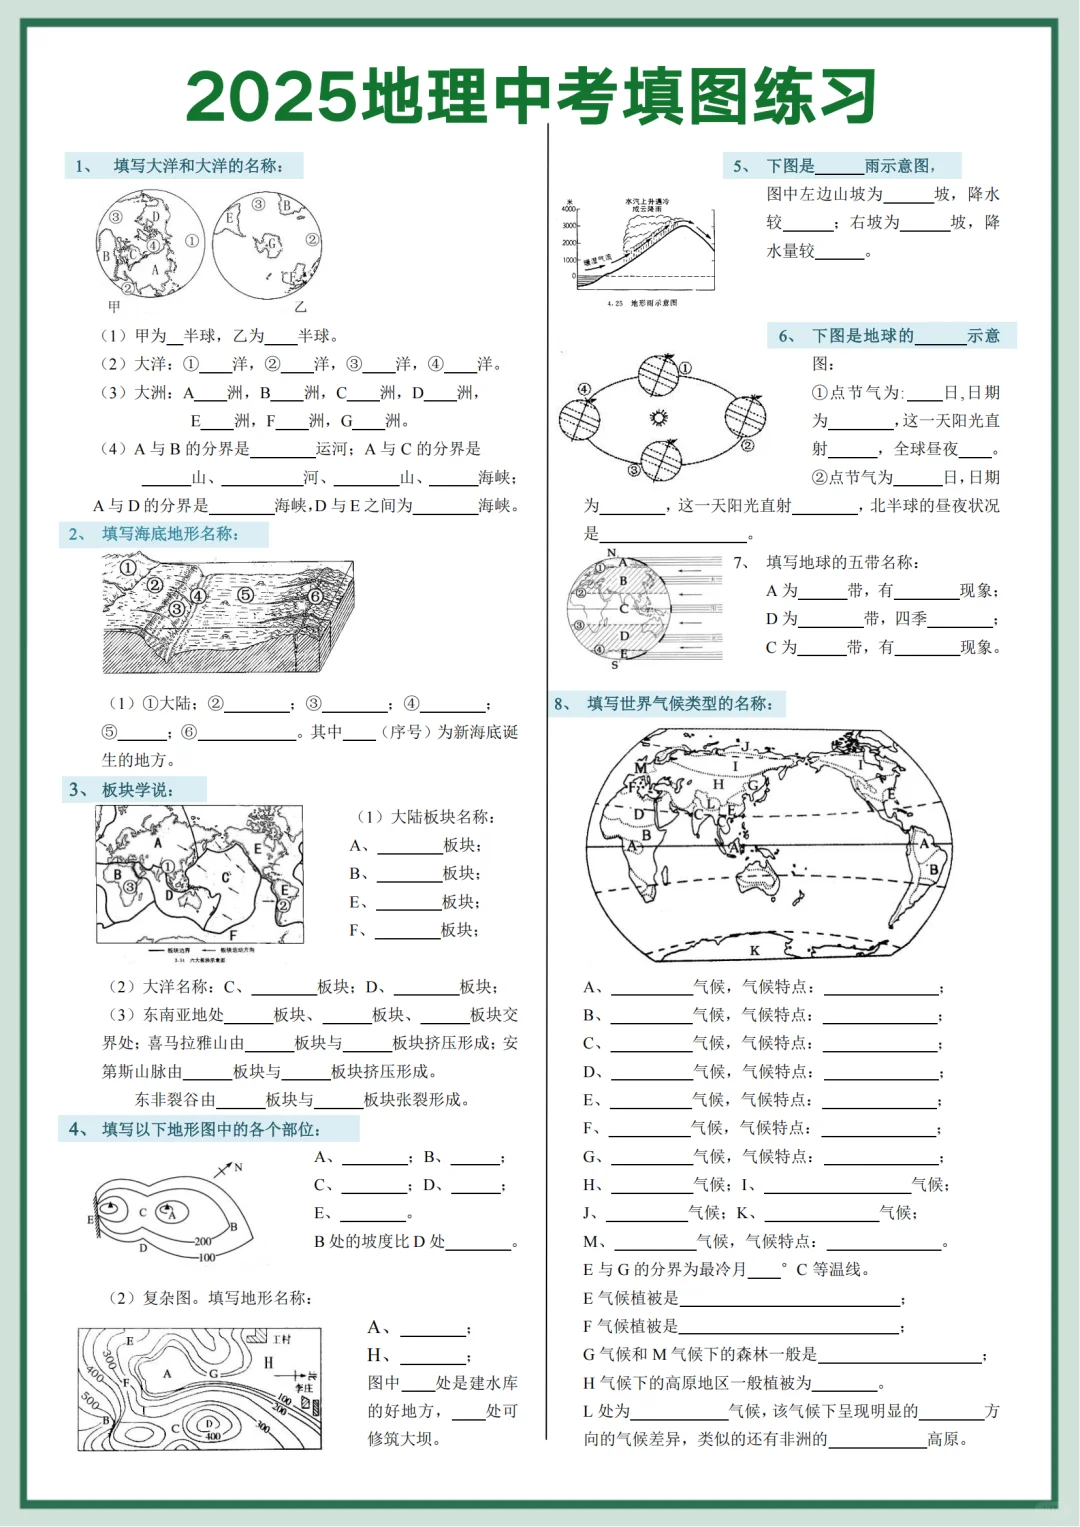 2025地理中考填图练习
1、 填写大洋和大洋的名称：
③ D ① B C ④ A ②
E ③ B ② G F
甲 乙
（1）甲为__半球，乙为____半球。
（2）大洋：①____洋，②____洋，③____洋，④____洋。
（3）大洲：A____洲，B____洲，C____洲，D____洲，
E____洲，F____洲，G____洲。
（4）A 与 B 的分界是________运河；A 与 C 的分界是
______山、__________河、________山、______海峡；
A 与 D 的分界是________海峡，D 与 E 之间为________海峡。
2、 填写海底地形名称：
① ② ③ ④ ⑤ ⑥
（1）①大陆；②________；③________；④________；
⑤______；⑥____________。其中____（序号）为新海底诞
生的地方。
3、 板块学说：
A E B ① ③ C D E ② F
板块边界 板块运动方向
3.14 六大板块示意图
（1）大陆板块名称：
A、________板块；
B、________板块；
E、________板块；
F、________板块；
（2）大洋名称：C、________板块；D、________板块；
（3）东南亚地处______板块、______板块、______板块交
界处；喜马拉雅山由______板块与______板块挤压形成；安
第斯山脉由______板块与______板块挤压形成。
东非裂谷由______板块与______板块张裂形成。
4、 填写以下地形图中的各个部位：
N
E C A B
D
200
100
A、________；B、______；
C、________；D、______；
E、________。
B 处的坡度比 D 处________。
（2）复杂图。填写地形名称：
E 王村
300 H
400 F A G 北
500 李庄
I 100
B 200
C D 300
400
A、________；
H、________；
图中____处是建水库
的好地方，____处可
修筑大坝。
5、 下图是______雨示意图，
图中左边山坡为______坡，降水
较______；右坡为______坡，降
水量较______。
米
4000
3000
2000
1000
0
水汽上升遇冷
成云降雨
暖湿气流
4.25 地形雨示意图
6、 下图是地球的______示意
图：
① ② ③ ④
①点节气为:____日,日期
为________,这一天阳光直
射______，全球昼夜____。
②点节气为______日,日期
为________，这一天阳光直射________，北半球的昼夜状况
是__________________。
N
① A
B
②
C
③
D
④ E
S
7、 填写地球的五带名称：
A 为______带，有________现象；
D 为________带，四季________；
C 为______带，有________现象。
8、 填写世界气候类型的名称：
J
M I I
F H G E
D L
B C E
A A A
B
K
A、__________气候，气候特点：______________；
B、__________气候，气候特点：______________；
C、__________气候，气候特点：______________；
D、__________气候，气候特点：______________；
E、__________气候，气候特点：______________；
F、__________气候，气候特点：______________；
G、__________气候，气候特点：______________；
H、__________气候；I、__________________气候；
J、__________气候；K、______________气候；
M、__________气候，气候特点：______________。
E 与 G 的分界为最冷月____°C 等温线。
E 气候植被是___________________________；
F 气候植被是___________________________；
G 气候和 M 气候下的森林一般是____________________；
H 气候下的高原地区一般植被为________。
L 处为____________气候，该气候下呈现明显的________方
向的气候差异，类似的还有非洲的____________高原。